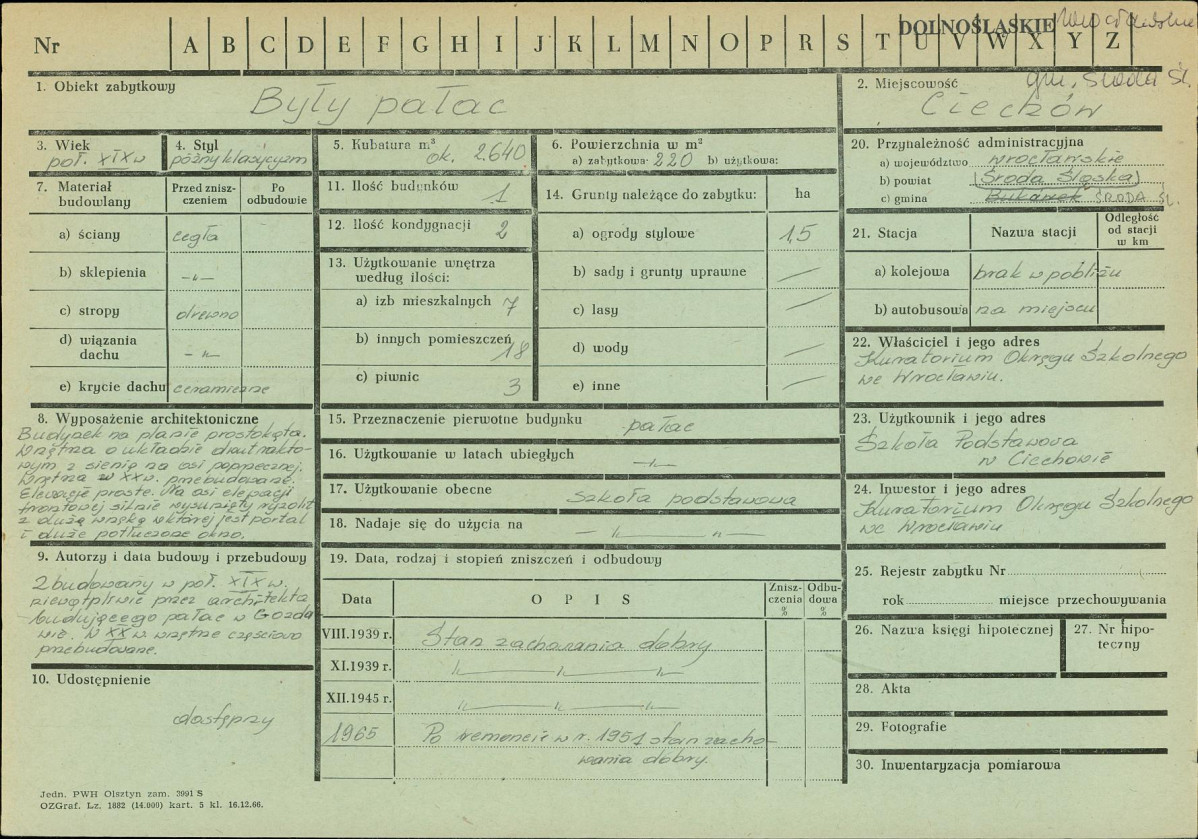 Nr A B C D E F G H I J K L M N O P R S T U V W X Y Z
DOLNOŚLĄSKIE
1. Obiekt zabytkowy
Były pałac
2. Miejscowość gm. Środa Śl.
Ciechów
3. Wiek
poł. XIX w
4. Styl
późny klasycyzm
5. Kubatura m.³
ok. 2.640
6. Powierzchnia w m²
a) zabytkowa: 220 b) użytkowa:
20. Przynależność administracyjna
a) województwo wrocławskie
b) powiat (Środa Śląska)
c) gmina Bukówek ŚRODA ŚL.
7. Materiał budowlany
Przed zniszczeniem
Po odbudowie
a) ściany cegła
b) sklepienia -"-
c) stropy drewno
d) wiązania dachu -"-
e) krycie dachu ceramiczne
11. Ilość budynków 1
12. Ilość kondygnacji 2
13. Użytkowanie wnętrza
według ilości:
a) izb mieszkalnych 7
b) innych pomieszczeń 18
c) piwnic 3
14. Grunty należące do zabytku: ha
a) ogrody stylowe 1,5
b) sady i grunty uprawne —
c) lasy —
d) wody —
e) inne —
21. Stacja Nazwa stacji Odległość od stacji w km
a) kolejowa brak w pobliżu
b) autobusowa na miejscu
22. Właściciel i jego adres
Kuratorium Okręgu Szkolnego
we Wrocławiu.
8. Wyposażenie architektoniczne
Budynek na planie prostokąta.
Wnętrza o układzie dwutrakto-
wym z sienią na osi poprzecznej.
Wnętrza w XX w. przebudowane.
Elewacje proste. Na osi elewacji
frontowej silnie wysunięty ryzalit
z dużą wnęką w której jest portal
i duże półłuczone okno.
15. Przeznaczenie pierwotne budynku pałac
16. Użytkowanie w latach ubiegłych -"-
17. Użytkowanie obecne szkoła podstawowa
18. Nadaje się do użycia na — " — " —
23. Użytkownik i jego adres
Szkoła Podstawowa
w Ciechowie
24. Inwestor i jego adres
Kuratorium Okręgu Szkolnego
we Wrocławiu
9. Autorzy i data budowy i przebudowy
Zbudowany w poł. XIX w.
niewątpliwie przez architekta
budującego pałac w Gozda-
wie. W XX w. wnętrze częściowo
przebudowane.
10. Udostępnienie
dostępny
19. Data, rodzaj i stopień zniszczeń i odbudowy
Data OPIS Zniszczenia % Odbudowa %
VIII.1939 r. Stan zachowania dobry
XI.1939 r. " — " — "
XII.1945 r. " — " — "
1965 Po remoncie w r. 1951 stan zacho-
wania dobry.
25. Rejestr zabytku Nr
rok miejsce przechowywania
26. Nazwa księgi hipotecznej
27. Nr hipo-
teczny
28. Akta
29. Fotografie
30. Inwentaryzacja pomiarowa
Jedn. PWH Olsztyn zam. 3991 S
OZGraf. Lz. 1882 (14.000) kart. 5 kl. 16.12.66.